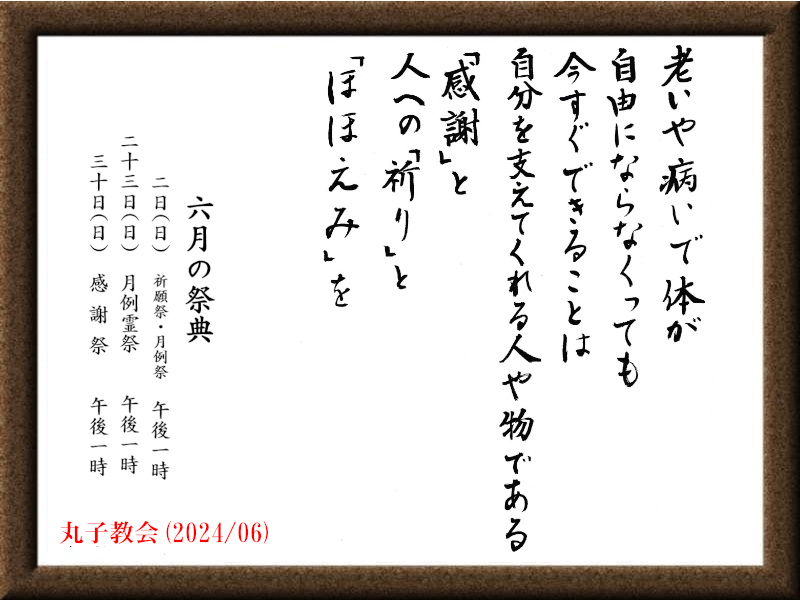 老いや病いで体が
自由にならなくっても
今すぐできることは
自分を支えてくれる人や物である
「感謝」と
人への「祈り」と
「ほほえみ」を
六月の祭典
二日(日) 祈願祭・月例祭 午後一時
二十三日(日) 月例霊祭 午後一時
三十日(日) 感謝祭 午後一時
丸子教会(2024/06)